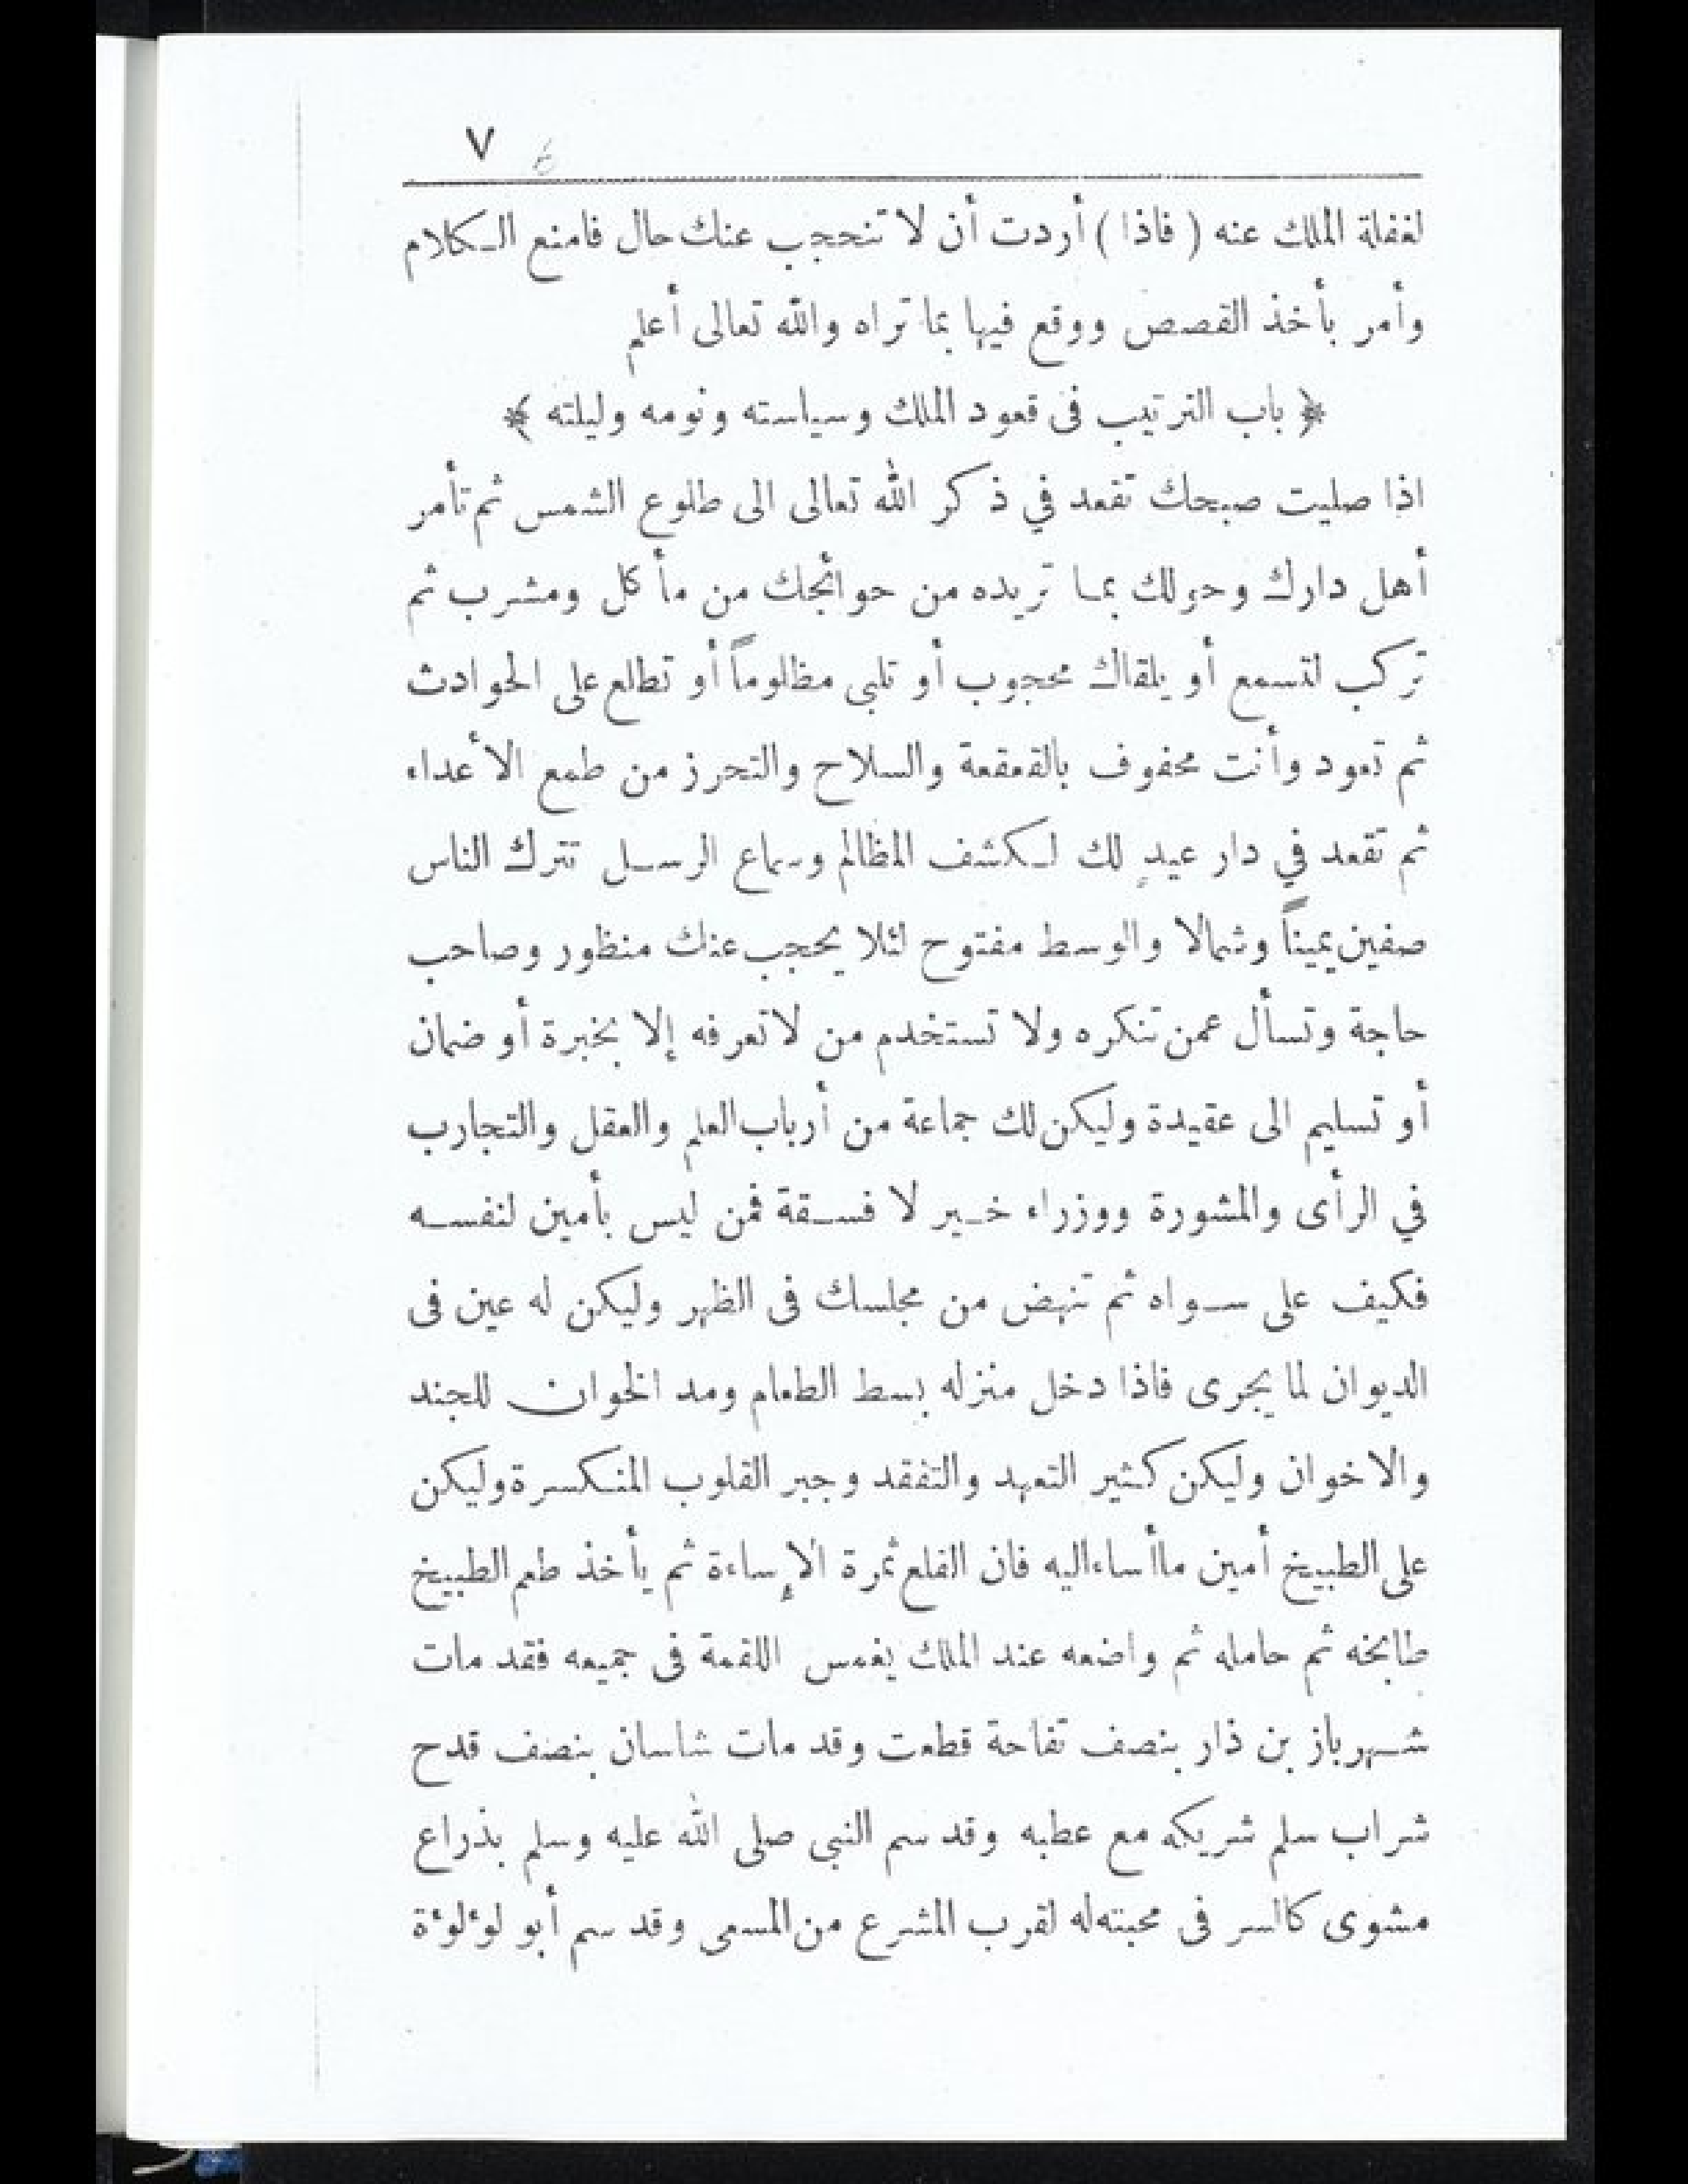 ٧
لغفلة الملك عنه ( فاذا ) أردت أن لا تنحجب عنك حال فامنع الـكلام
وأمر بأخذ القصص ووقع فيها بما تراه والله تعالى أعلم
﴿ باب الترتيب فى قعود الملك وسياسته ونومه وليلته ﴾
اذا صليت صبحك تقعد في ذكر الله تعالى الى طلوع الشمس ثم تأمر
أهل دارك وحولك بمـا تريده من حوائجك من مأكل ومشرب ثم
تركب لتسمع أو يلقاك محجوب أو تلبى مظلوماً أو تطلع على الحوادث
ثم تعود وأنت محفوف بالقعقعة والسلاح والتحرز من طمع الأعداء
ثم تقعد في دار عيدٍ لك لـكشف المظالم وسماع الرسـل تترك الناس
صفين يميناً وشمالا والوسط مفتوح لئلا يحجب عنك منظور وصاحب
حاجة وتسأل عمن تنكره ولا تستخدم من لا تعرفه إلا بخبرة أو ضمان
أو تسليم الى عقيدة وليكن لك جماعة من أرباب العلم والعقل والتجارب
في الرأى والمشورة ووزراء خـير لا فسـقة فمن ليس بأمين لنفسـه
فكيف على سـواه ثم تنهض من مجلسك فى الظهر وليكن له عين فى
الديوان لما يجرى فاذا دخل منزله بسط الطعام ومد الخوان للجند
والاخوان وليكن كثير التعهد والتفقد وجبر القلوب المنـكسرة وليكن
على الطبيخ أمين ماأساءاليه فان القلع ثمرة الإساءة ثم يأخذ طعم الطبيخ
طابخه ثم حامله ثم واضعه عند الملك يغمس اللقمة فى جميعه فقد مات
شـهرباز بن ذار بنصف تفاحة قطعت وقد مات شاسان بنصف قدح
شراب سلم شريكه مع عطبه وقد سم النبى صلى الله عليه وسلم بذراع
مشوى كالسر فى محبته له لقرب المشرع من المسعى وقد سم أبو لؤلؤة